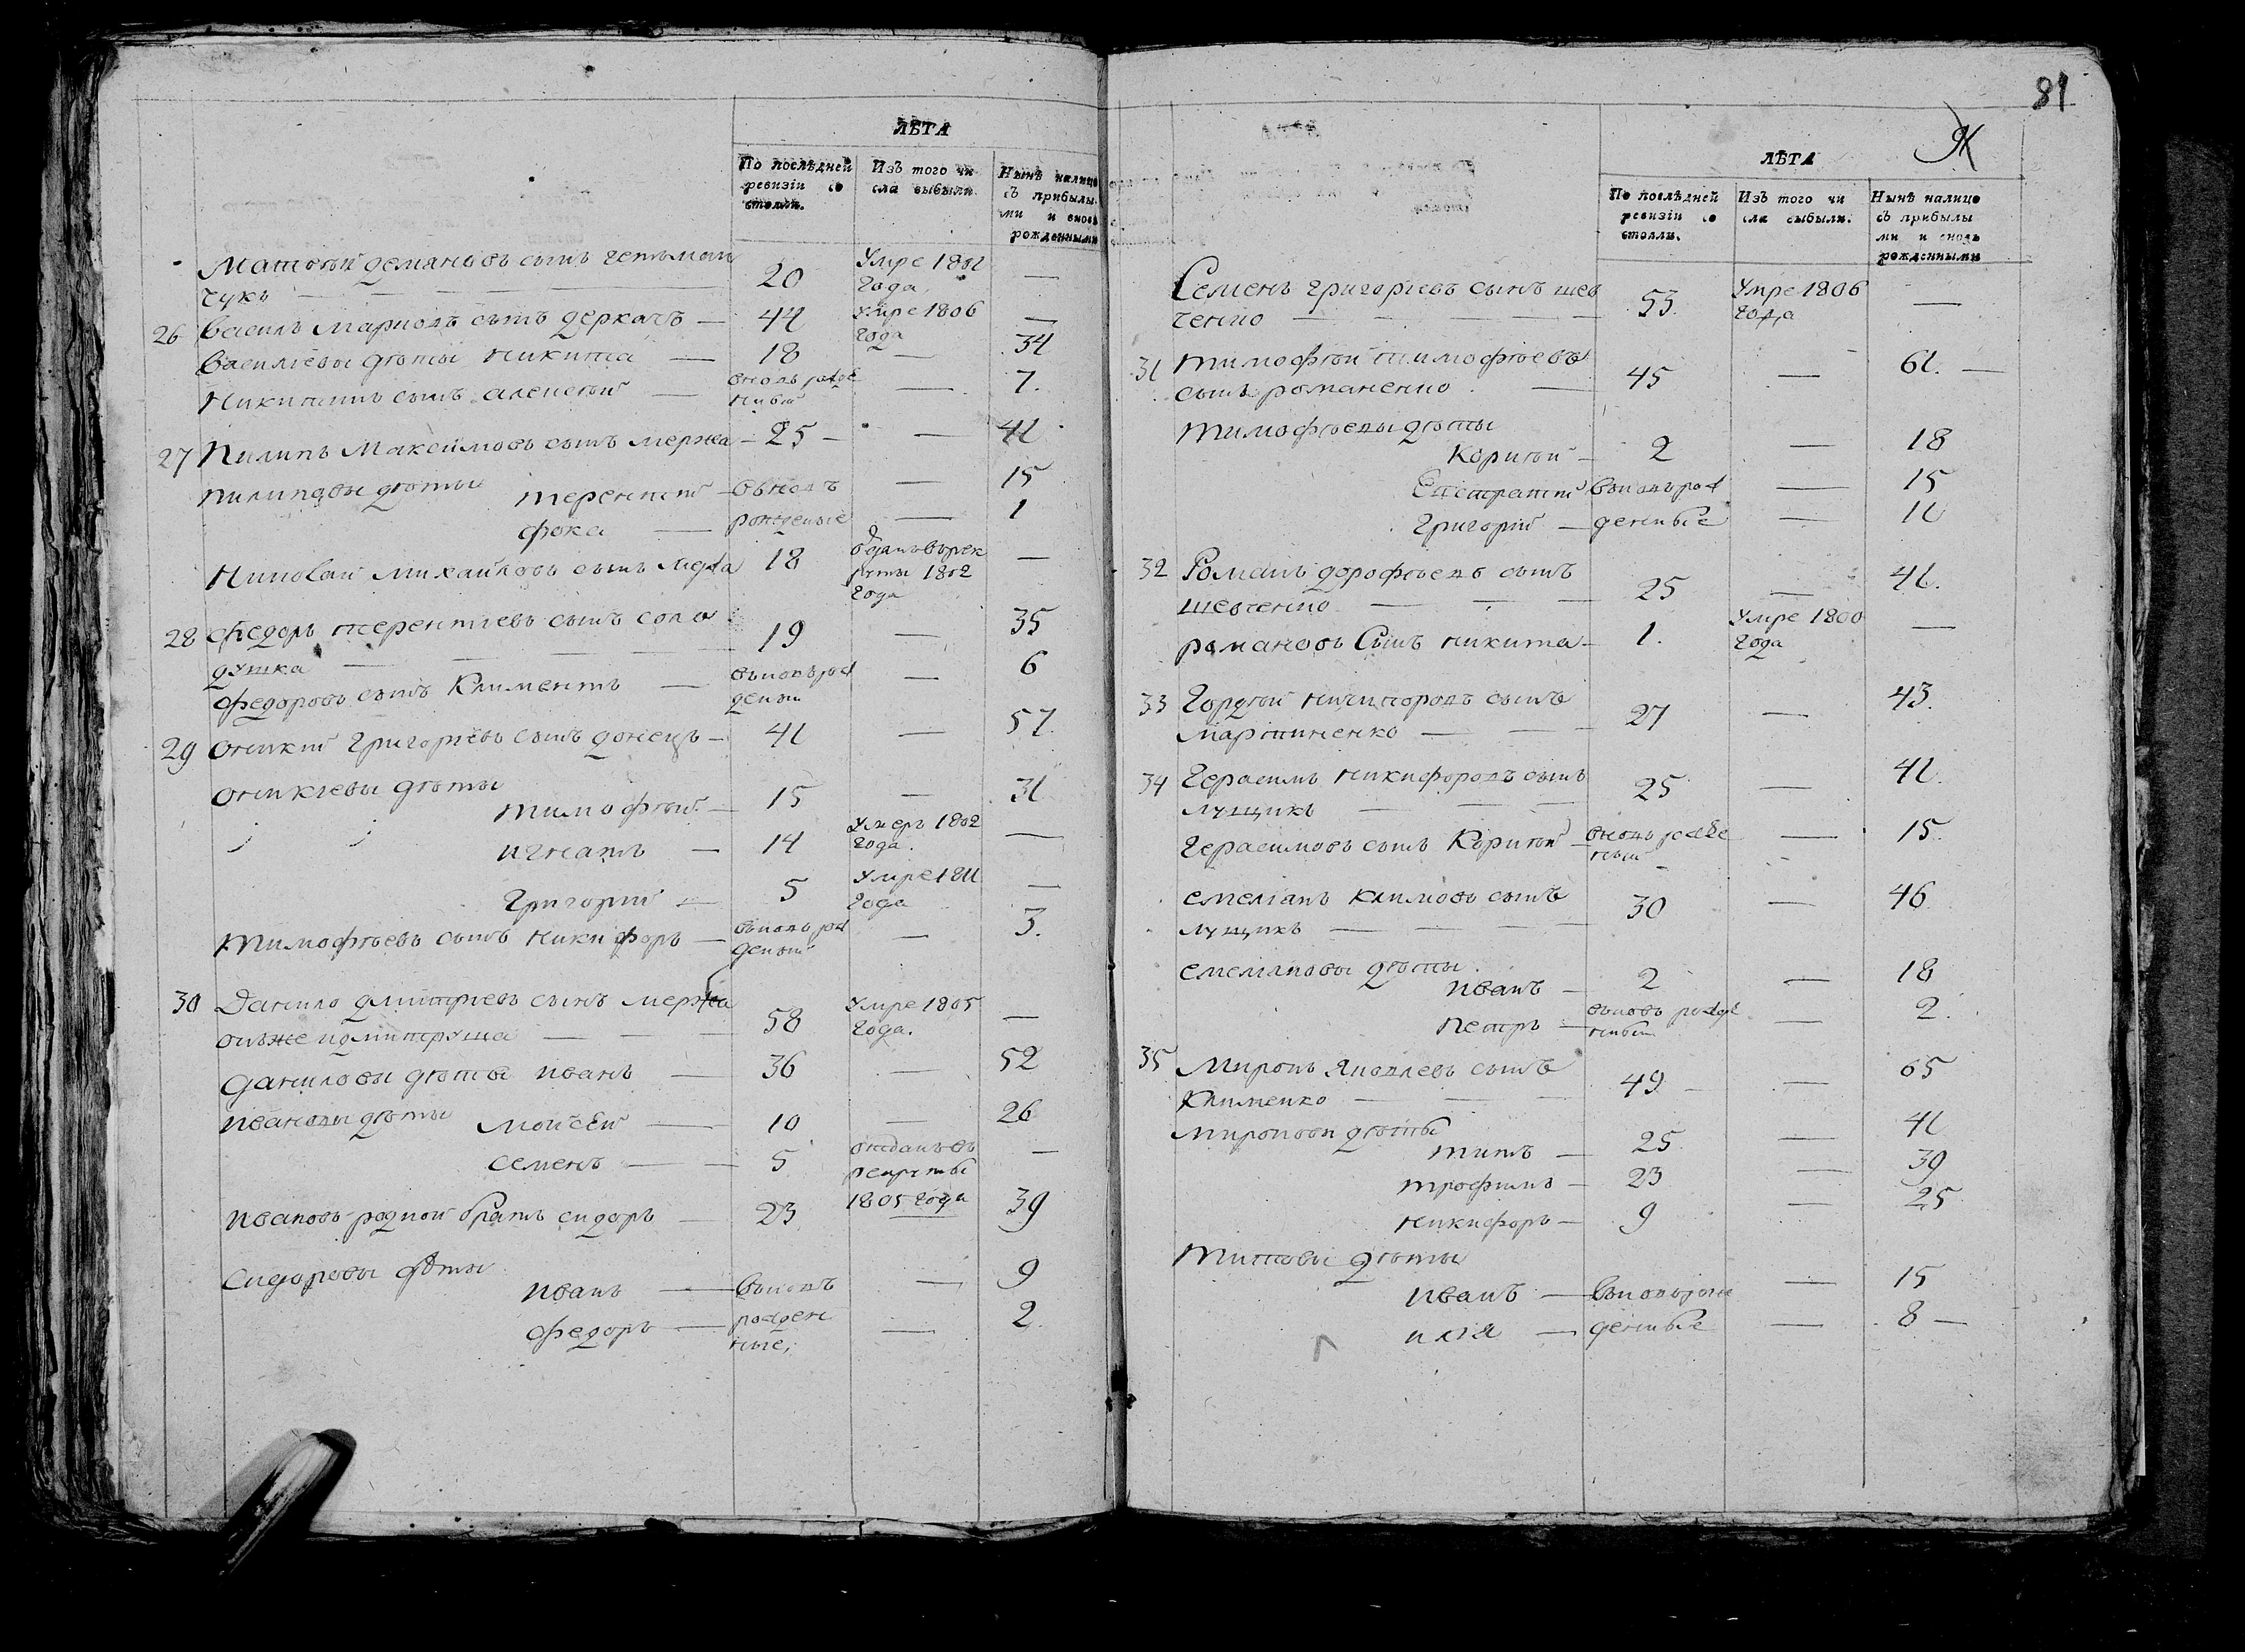 ЛѢТА
По послѣдней ревизіи состояли.
Изъ того числа выбыли.
Нынѣ налицо съ прибылыми и вновь рожденными
Матвѣй Демяновъ сынъ гетьман
чукъ — 20 Умре 1801 года —
26 Василь Марковъ сынъ деркачъ — 44 умре 1806 года —
Василіевы дѣты Никита — 18 — 34
Никитинъ сынъ алексѣй — вновь рожденый — 7.
27 Пилипъ Максимовъ сынъ мержа — 25 — 41
пилиповы дѣты терентій — вновъ — 15
фока — рожденые — 1
Николай михайловъ сынъ 18 отданъ въ рекруты 1802 года —
28 Федоръ терентіевъ сынъ соло
душка — 19 — 35
федоровъ сынъ Климентъ — вновь рожденый — 6
29 Оникій Григоріевъ сынъ донецъ — 41 — 57.
оникіевы дѣты
тимофѣй — 15 — 31
игнатъ — 14 умеръ 1802 года. —
Григорій — 5 Умре 1811 года —
тимофѣевъ сынъ никифоръ — вновь рожденый — 3.
30 Данило дмитріевъ сынъ мержа
онъже — 58 Умре 1805 года. —
даниловы дѣты иванъ — 36 — 52
ивановы дѣты моисей — 10 — 26
семенъ — 5 отданъ въ рекруты 1805 года —
ивановъ родной братъ сидоръ — 23 — 39
сидоровы дѣты
иванъ — вновъ — 9
федоръ — рожденные, — 2.
81
ЛѢТА
По послѣдней ревизіи состояли.
Изъ того числа выбыли.
Нынѣ налицо съ прибылыми и вновь рожденными
Семенъ григоріевъ сынъ шев
ченко — 53. Умре 1806 года —
31 тимофѣй тимофѣевъ
сынъ романенко — 45 — 61. —
тимофѣевы дѣты
Корнѣй — 2 — 18
Евстратій вновь рож — 15
григорій — денные — 11
32 Романъ дорофѣевъ сынъ
шевченко — 25 — 41.
романовъ Сынъ никита — 1. Умре 1800 года —
33 Гордѣй ничипоровъ сынъ
мартиненко — 27 — 43.
34 Герасимъ никифоровъ сынъ
лущикъ — 25 — 41.
герасимовъ сынъ Корнѣй — вновь рожденый — 15.
емеліанъ климовъ сынъ
лущикъ — 30 — 46
емеліановы дѣты
иванъ — 2 — 18
петръ — вновь рожденый — 2.
35 Миронъ Яковлевъ сынъ
Клименко — 49 — 65
мироновы дѣты
титъ — 25 — 41
трофимъ — 23 — 39
никифоръ — 9 — 25
титовы дѣты
иванъ — вновь рож — 15
илія — денные — 8 —